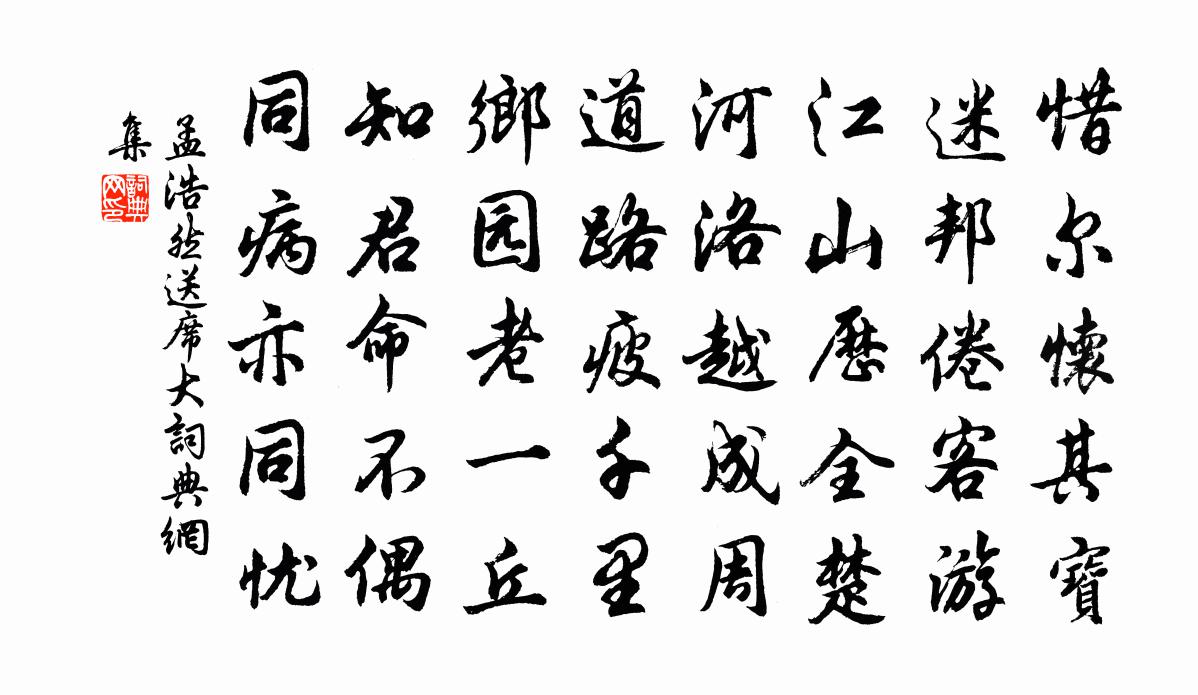 惜尔懷其寶
迷邦倦客游
江山歷全楚
河洛越成周
道路疲千里
鄉园老一丘
知君命不偶
同病亦同忧
孟浩然送席大詞典網
集
詞典
网印